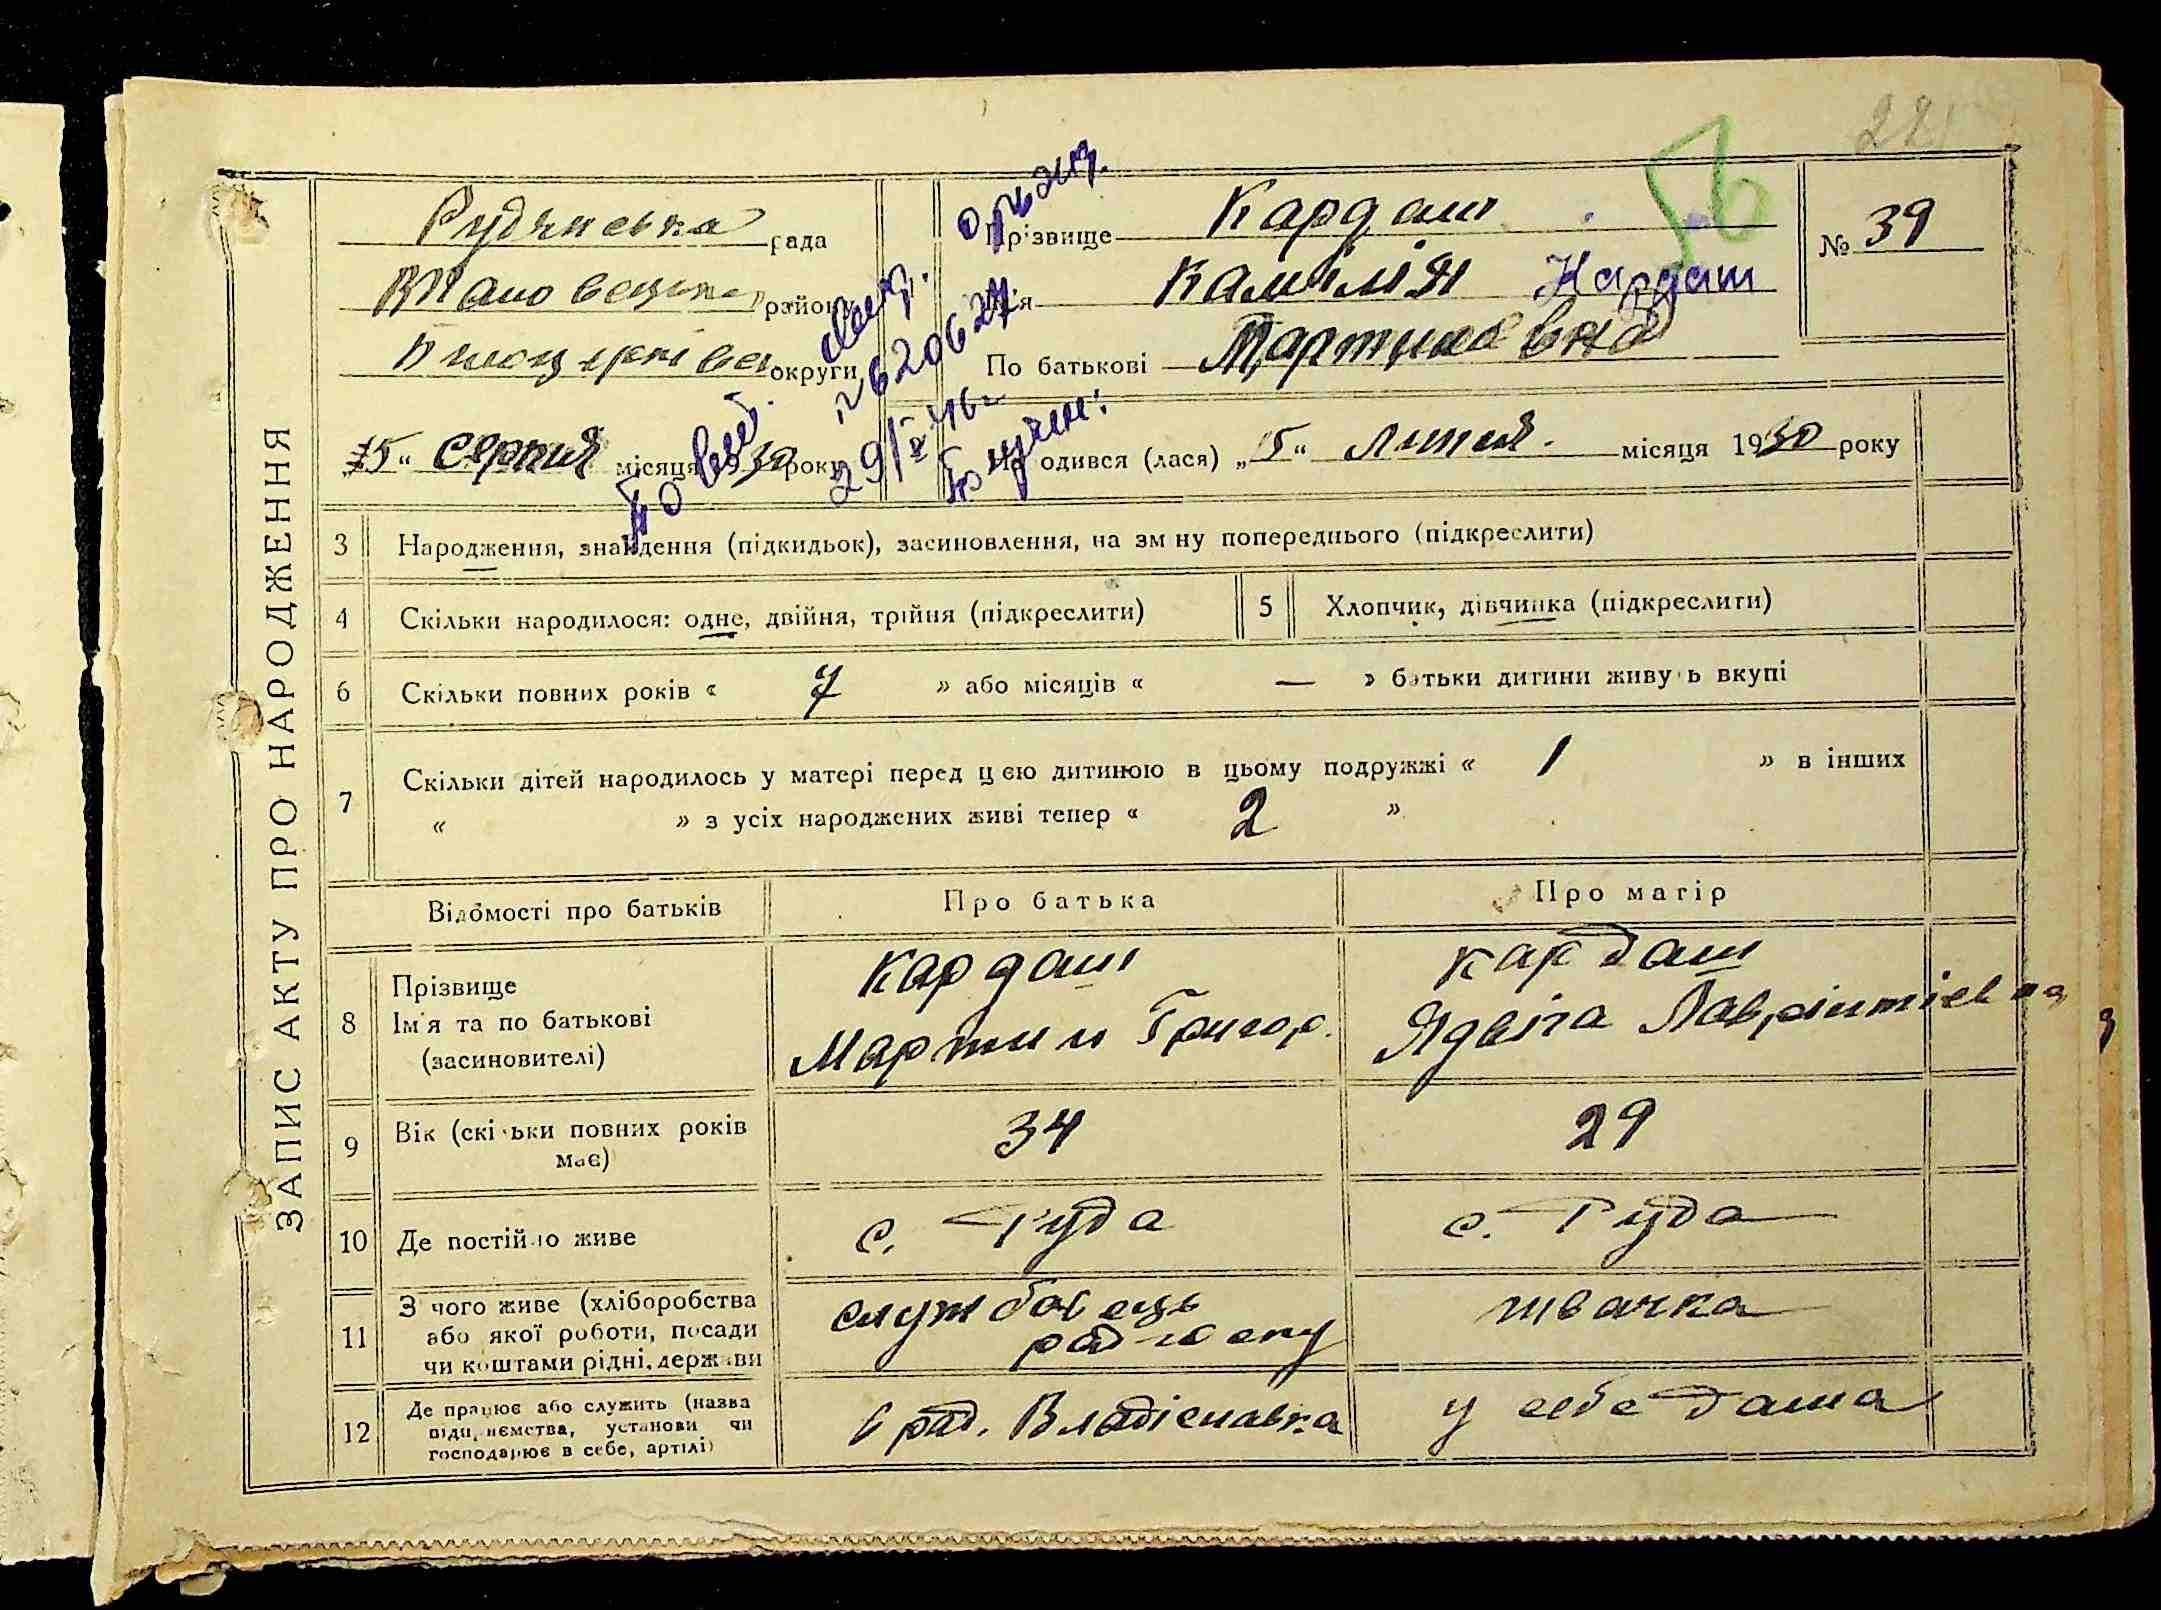 221
ЗАПИС АКТУ ПРО НАРОДЖЕННЯ
Рудянська рада
району
округи
Прізвище Кардаш
Камілія Кардаш
По батькові Мартинівна
№ 39
"15" Серпня місяця 1930 року
Народився (лася) "15" Липня місяця 1930 року
Повт. свід.
№ 620627
29/V 46
3 Народження, знайдення (підкидьок), засиновлення, на зміну попереднього (підкреслити)
4 Скільки народилося: одне, двійня, трійня (підкреслити)
5 Хлопчик, дівчинка (підкреслити)
6 Скільки повних років « 7 » або місяців « — » батьки дитини живуть вкупі
7 Скільки дітей народилось у матері перед цією дитиною в цьому подружжі « 1 » в інших
« » з усіх народжених живі тепер « 2 »
Відомості про батьків Про батька Про матір
8 Прізвище Ім'я та по батькові (засиновителі)
Кардаш Мартин Григор.
Кардаш Ядвіга Лаврінтієвна
9 Вік (скільки повних років має) 34 29
10 Де постійно живе с. Руда с. Руда
11 З чого живе (хліборобства або якої роботи, посади чи коштами рідні, держави
службовець радгоспу
швачка
12 Де працює або служить (назва підприємства, установи чи господарює в себе, артілі)
рад. Владіславка
у себе дома